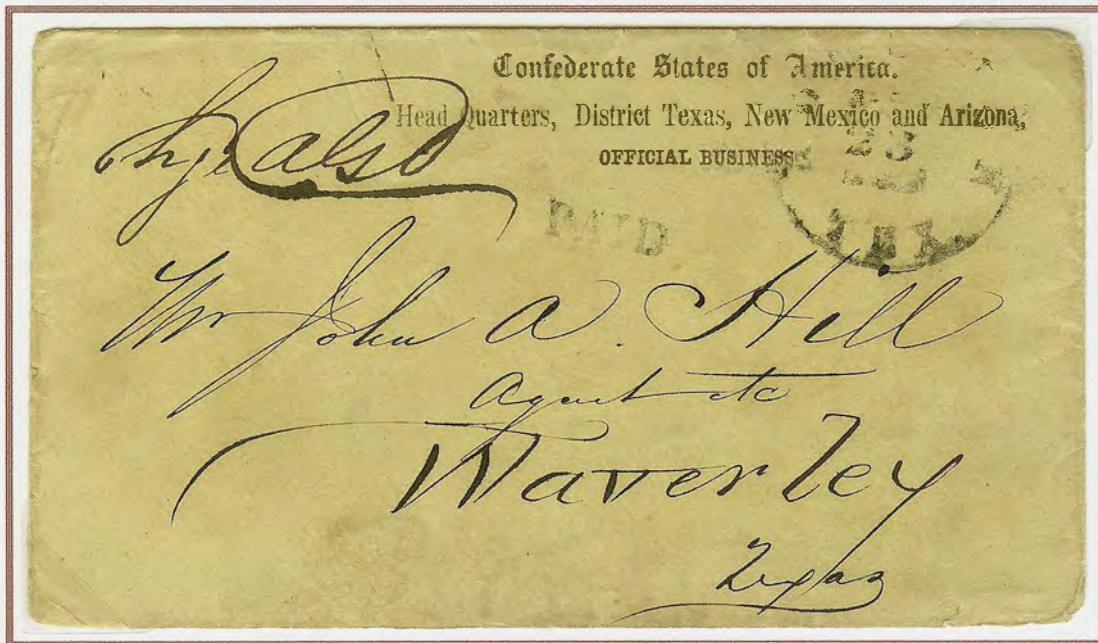 Confederate States of America.
Head Quarters, District Texas, New Mexico and Arizona,
OFFICIAL BUSINESS
also
23
PAID
TEX.
Mr John A. Hill
Agent etc
Waverley
Texas